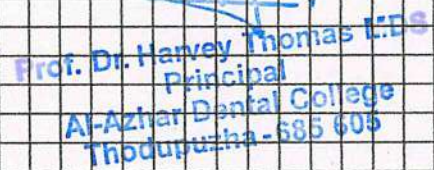 Prof. Dr. Harvey Thomas MDS
Principal
Al-Azhar Dental College
Thodupuzha - 685 605